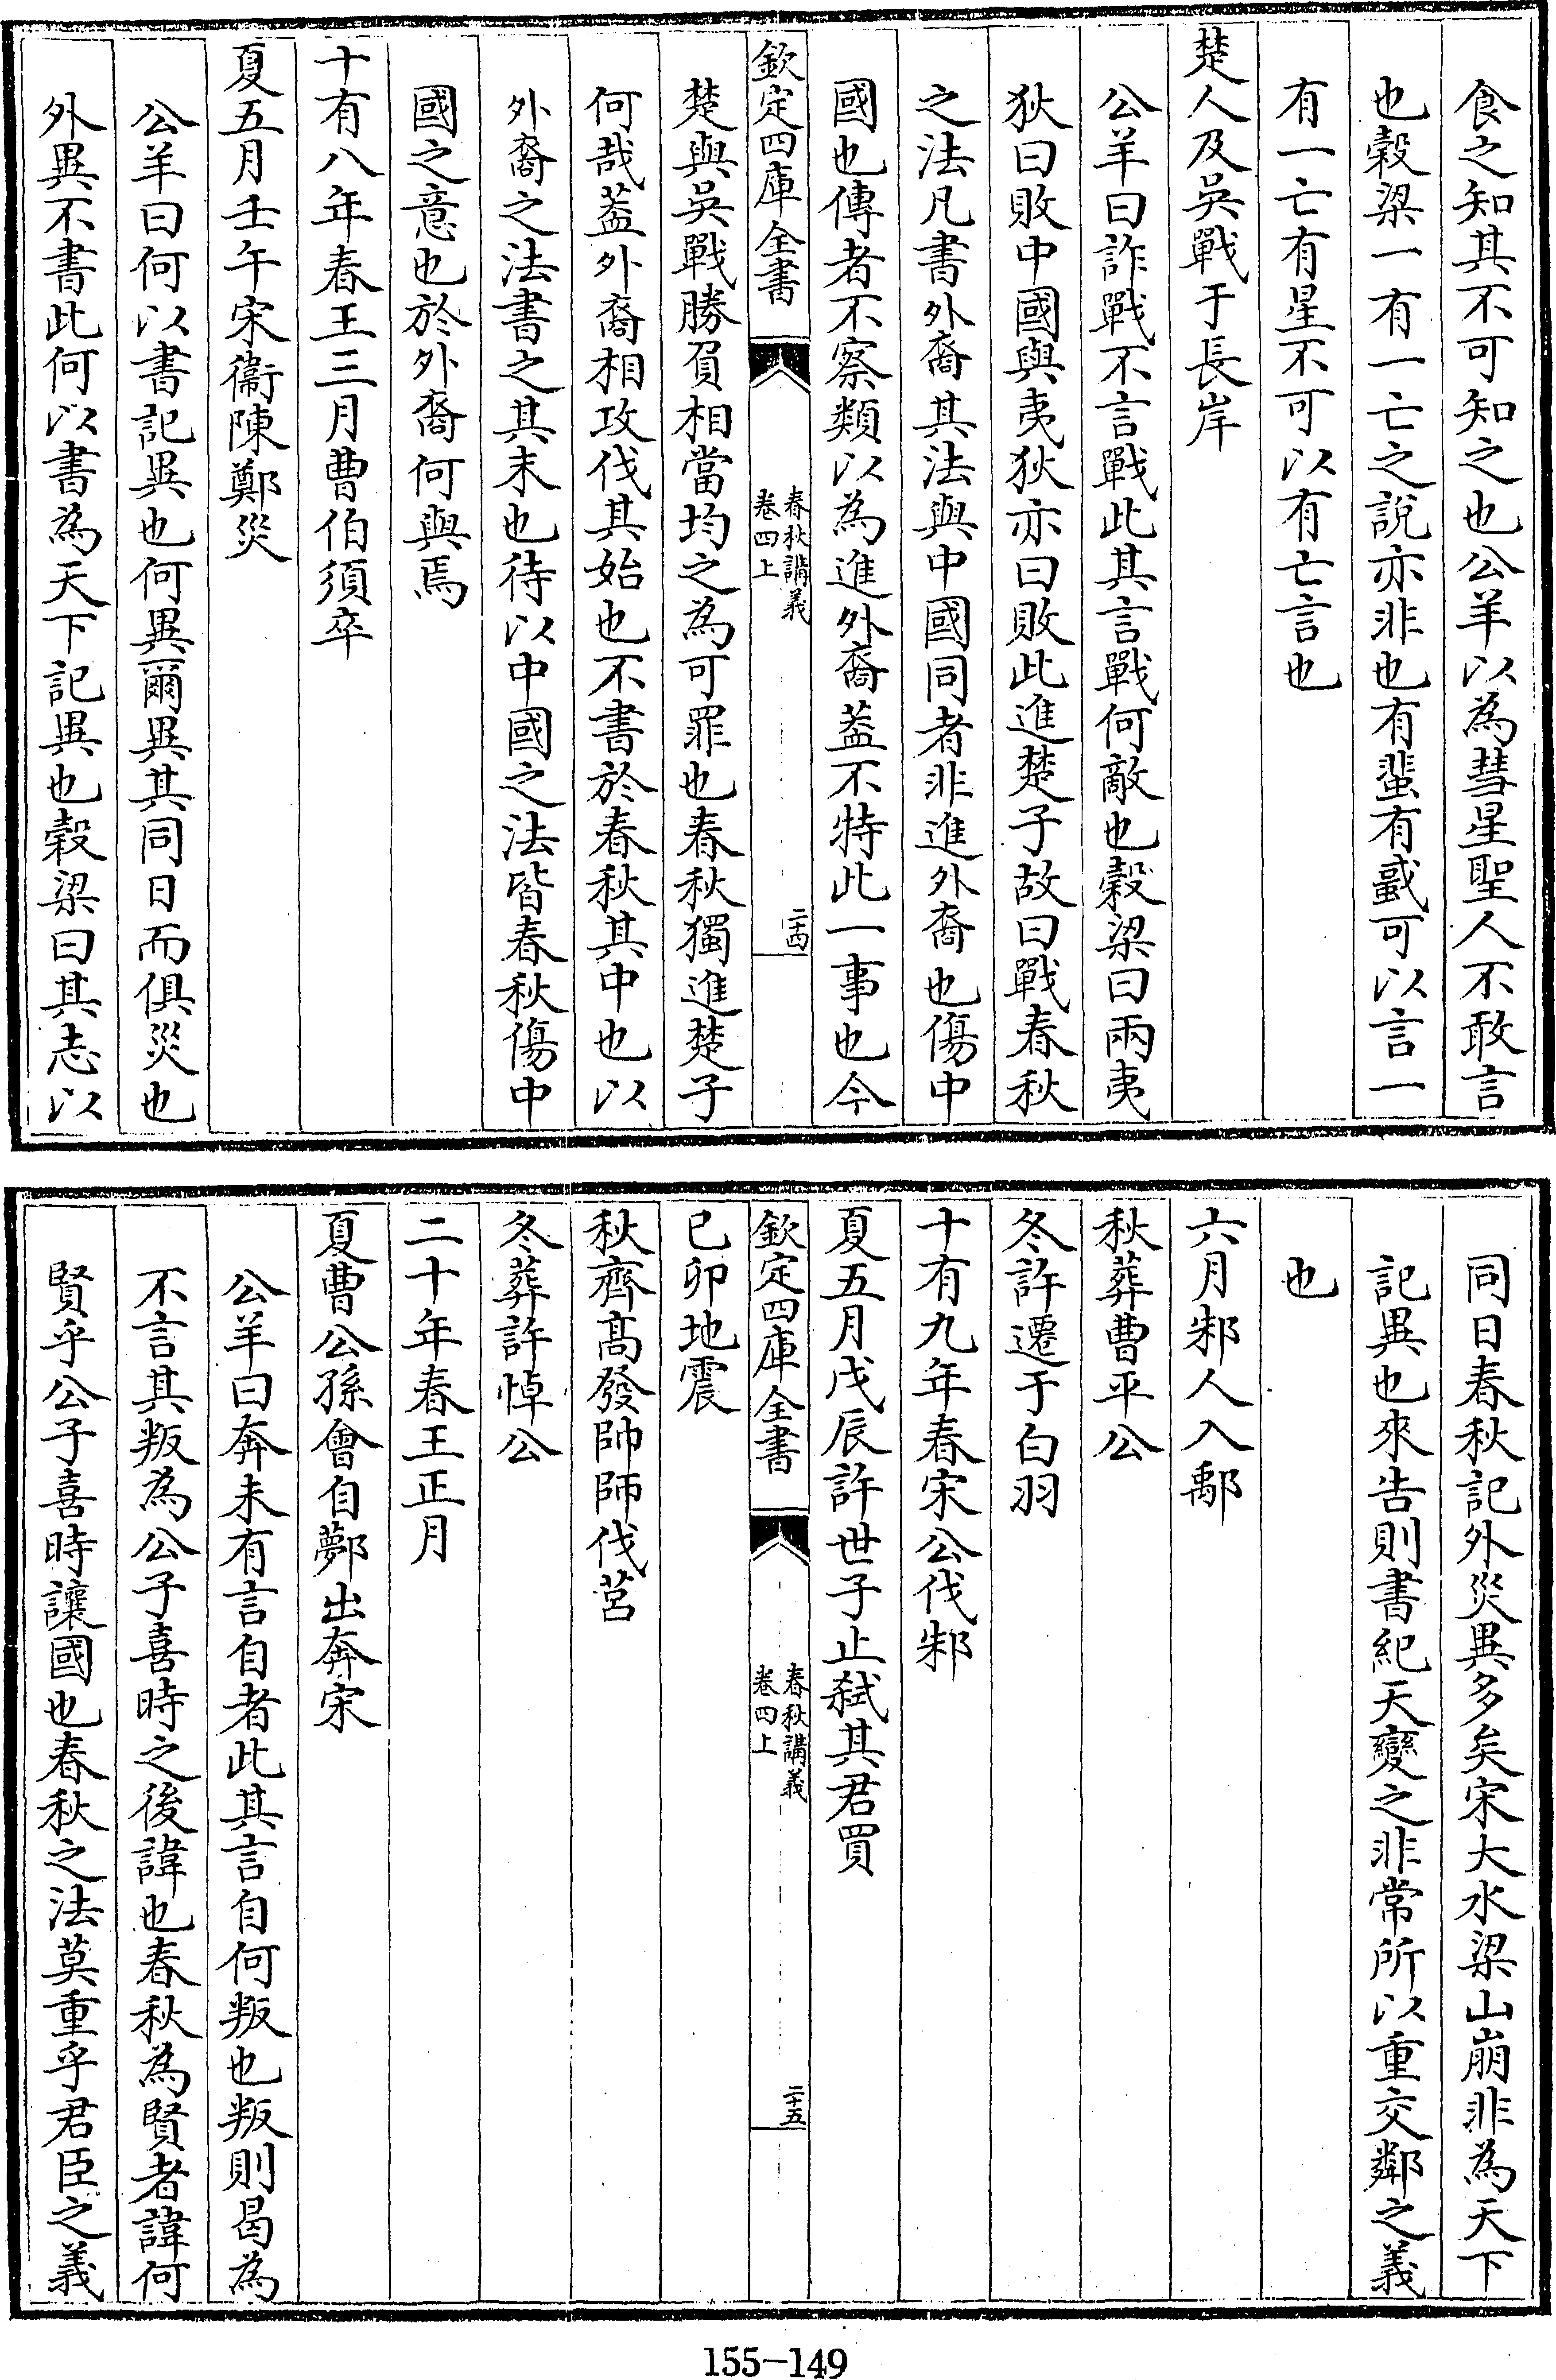 食之知其不可知之也公羊以為彗星聖人不敢言
也榖梁一有一亡之說亦非也有蜚有蜮可以言一
有一亡有星不可以有亡言也
楚人及吳戰于長岸
公羊曰詐戰不言戰此其言戰何敵也榖梁曰兩夷
狄曰敗中國與夷狄亦曰敗此進楚子故曰戰春秋
之法凡書外裔其法與中國同者非進外裔也傷中
國也傳者不察類以為進外裔葢不特此一事也今
欽定四庫全書
春秋講義
卷四上
二十四
楚與吳戰勝負相當均之為可罪也春秋獨進楚子
何哉葢外裔相攻伐其始也不書於春秋其中也以
外裔之法書之其末也待以中國之法皆春秋傷中
國之意也於外裔何與焉
十有八年春王三月曹伯須卒
夏五月壬午宋衞陳鄭災
公羊曰何以書記異也何異爾異其同日而俱災也
外異不書此何以書為天下記異也榖梁曰其志以
同日春秋記外災異多矣宋大水梁山崩非為天下
記異也來告則書紀天變之非常所以重交鄰之義
也
六月邾人入鄅
秋葬曹平公
冬許遷于白羽
十有九年春宋公伐邾
夏五月戊辰許世子止弒其君買
欽定四庫全書
春秋講義
卷四上
二十五
已卯地震
秋齊髙發帥師伐莒
冬葬許悼公
二十年春王正月
夏曹公孫會自鄸出奔宋
公羊曰奔未有言自者此其言自何叛也叛則曷為
不言其叛為公子喜時之後諱也春秋為賢者諱何
賢乎公子喜時讓國也春秋之法莫重乎君臣之義
155-149